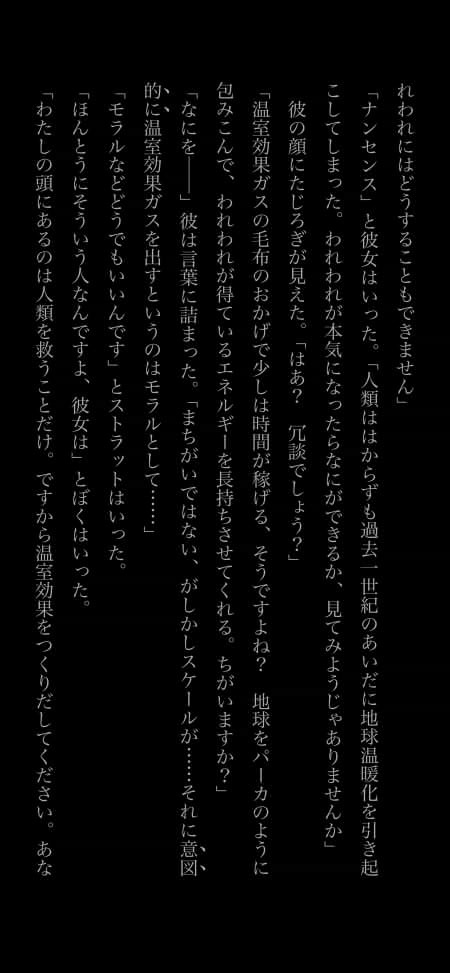 れわれにはどうすることもできません」
「ナンセンス」と彼女はいった。「人類ははからずも過去一世紀のあいだに地球温暖化を引き起
こしてしまった。われわれが本気になったらなにができるか、見てみようじゃありませんか」
彼の顔にたじろぎが見えた。「はあ？　冗談でしょう？」
「温室効果ガスの毛布のおかげで少しは時間が稼げる、そうですよね？　地球をパーカのように
包みこんで、われわれが得ているエネルギーを長持ちさせてくれる。ちがいますか？」
「なにを――」彼は言葉に詰まった。「まちがいではない、がしかしスケールが……それに意図
的に温室効果ガスを出すというのはモラルとして……」
「モラルなどどうでもいいんです」とストラットはいった。
「ほんとうにそういう人なんですよ、彼女は」とぼくはいった。
「わたしの頭にあるのは人類を救うことだけ。ですから温室効果をつくりだしてください。あな